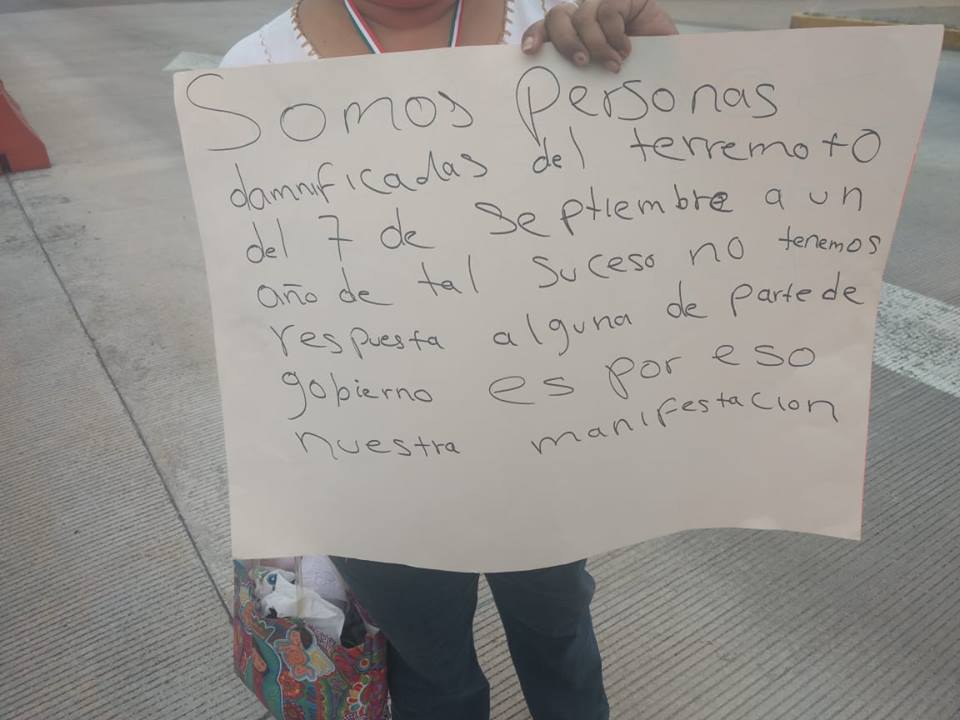 Somos Personas
damnificadas del terremoto
del 7 de Septiembre a un
año de tal suceso no tenemos
respuesta alguna de parte de
gobierno es por eso
nuestra manifestacion